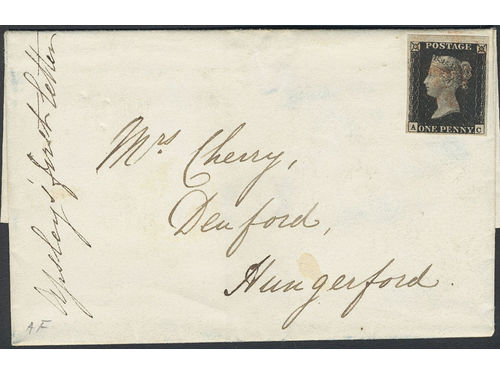 POSTAGE
A ONE PENNY G
Mrs Cherry,
Denford,
Hungerford.
Apsley's first letter
AF